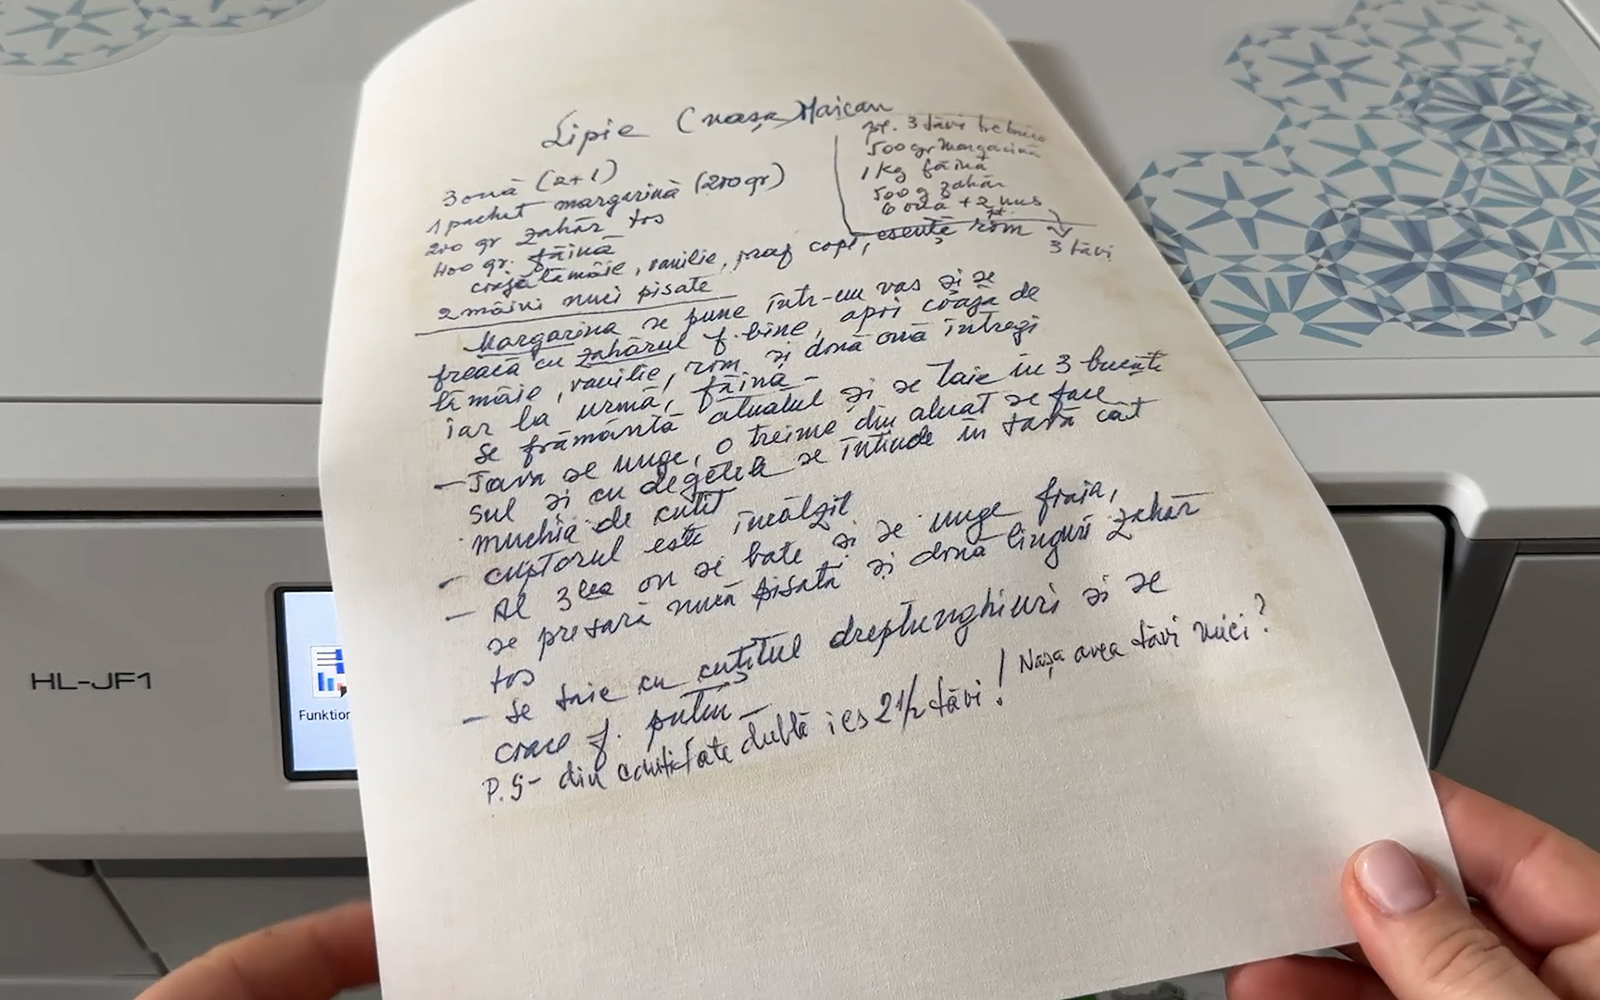 Lipie (nașa Maican
pt. 3 tăvi trebuie
500 gr margarină
1 kg făină
500 g zahăr
6 ouă + 2 uns
pt.
3 tăvi
3 ouă (2+1)
1 pachet margarină (200 gr)
200 gr zahăr tos
400 gr. făină
coajă lămâie, vanilie, praf copt, esență rom
2 mâini nuci pisate
Margarina se pune într-un vas și se
freacă cu zahărul f. bine, apoi coaja de
lămâie, vanilie, rom, și două ouă întregi
iar la urmă, făină -
Se frământă aluatul și se taie în 3 bucăți
- Tava se unge, o treime din aluat se face
sul și cu degetele se întinde în tavă cât
muchia de cuțit
- cuptorul este încălzit
- Al 3lea ou se bate și se unge foaia,
se presară nucă pisată și două linguri zahăr
tos
- Se taie cu cuțitul dreptunghiuri și se
coace f. puțin -
P.S - din cantitate dublă ies 2 1/2 tăvi! Nașa avea tăvi mici?
HL-JF1
Funktion